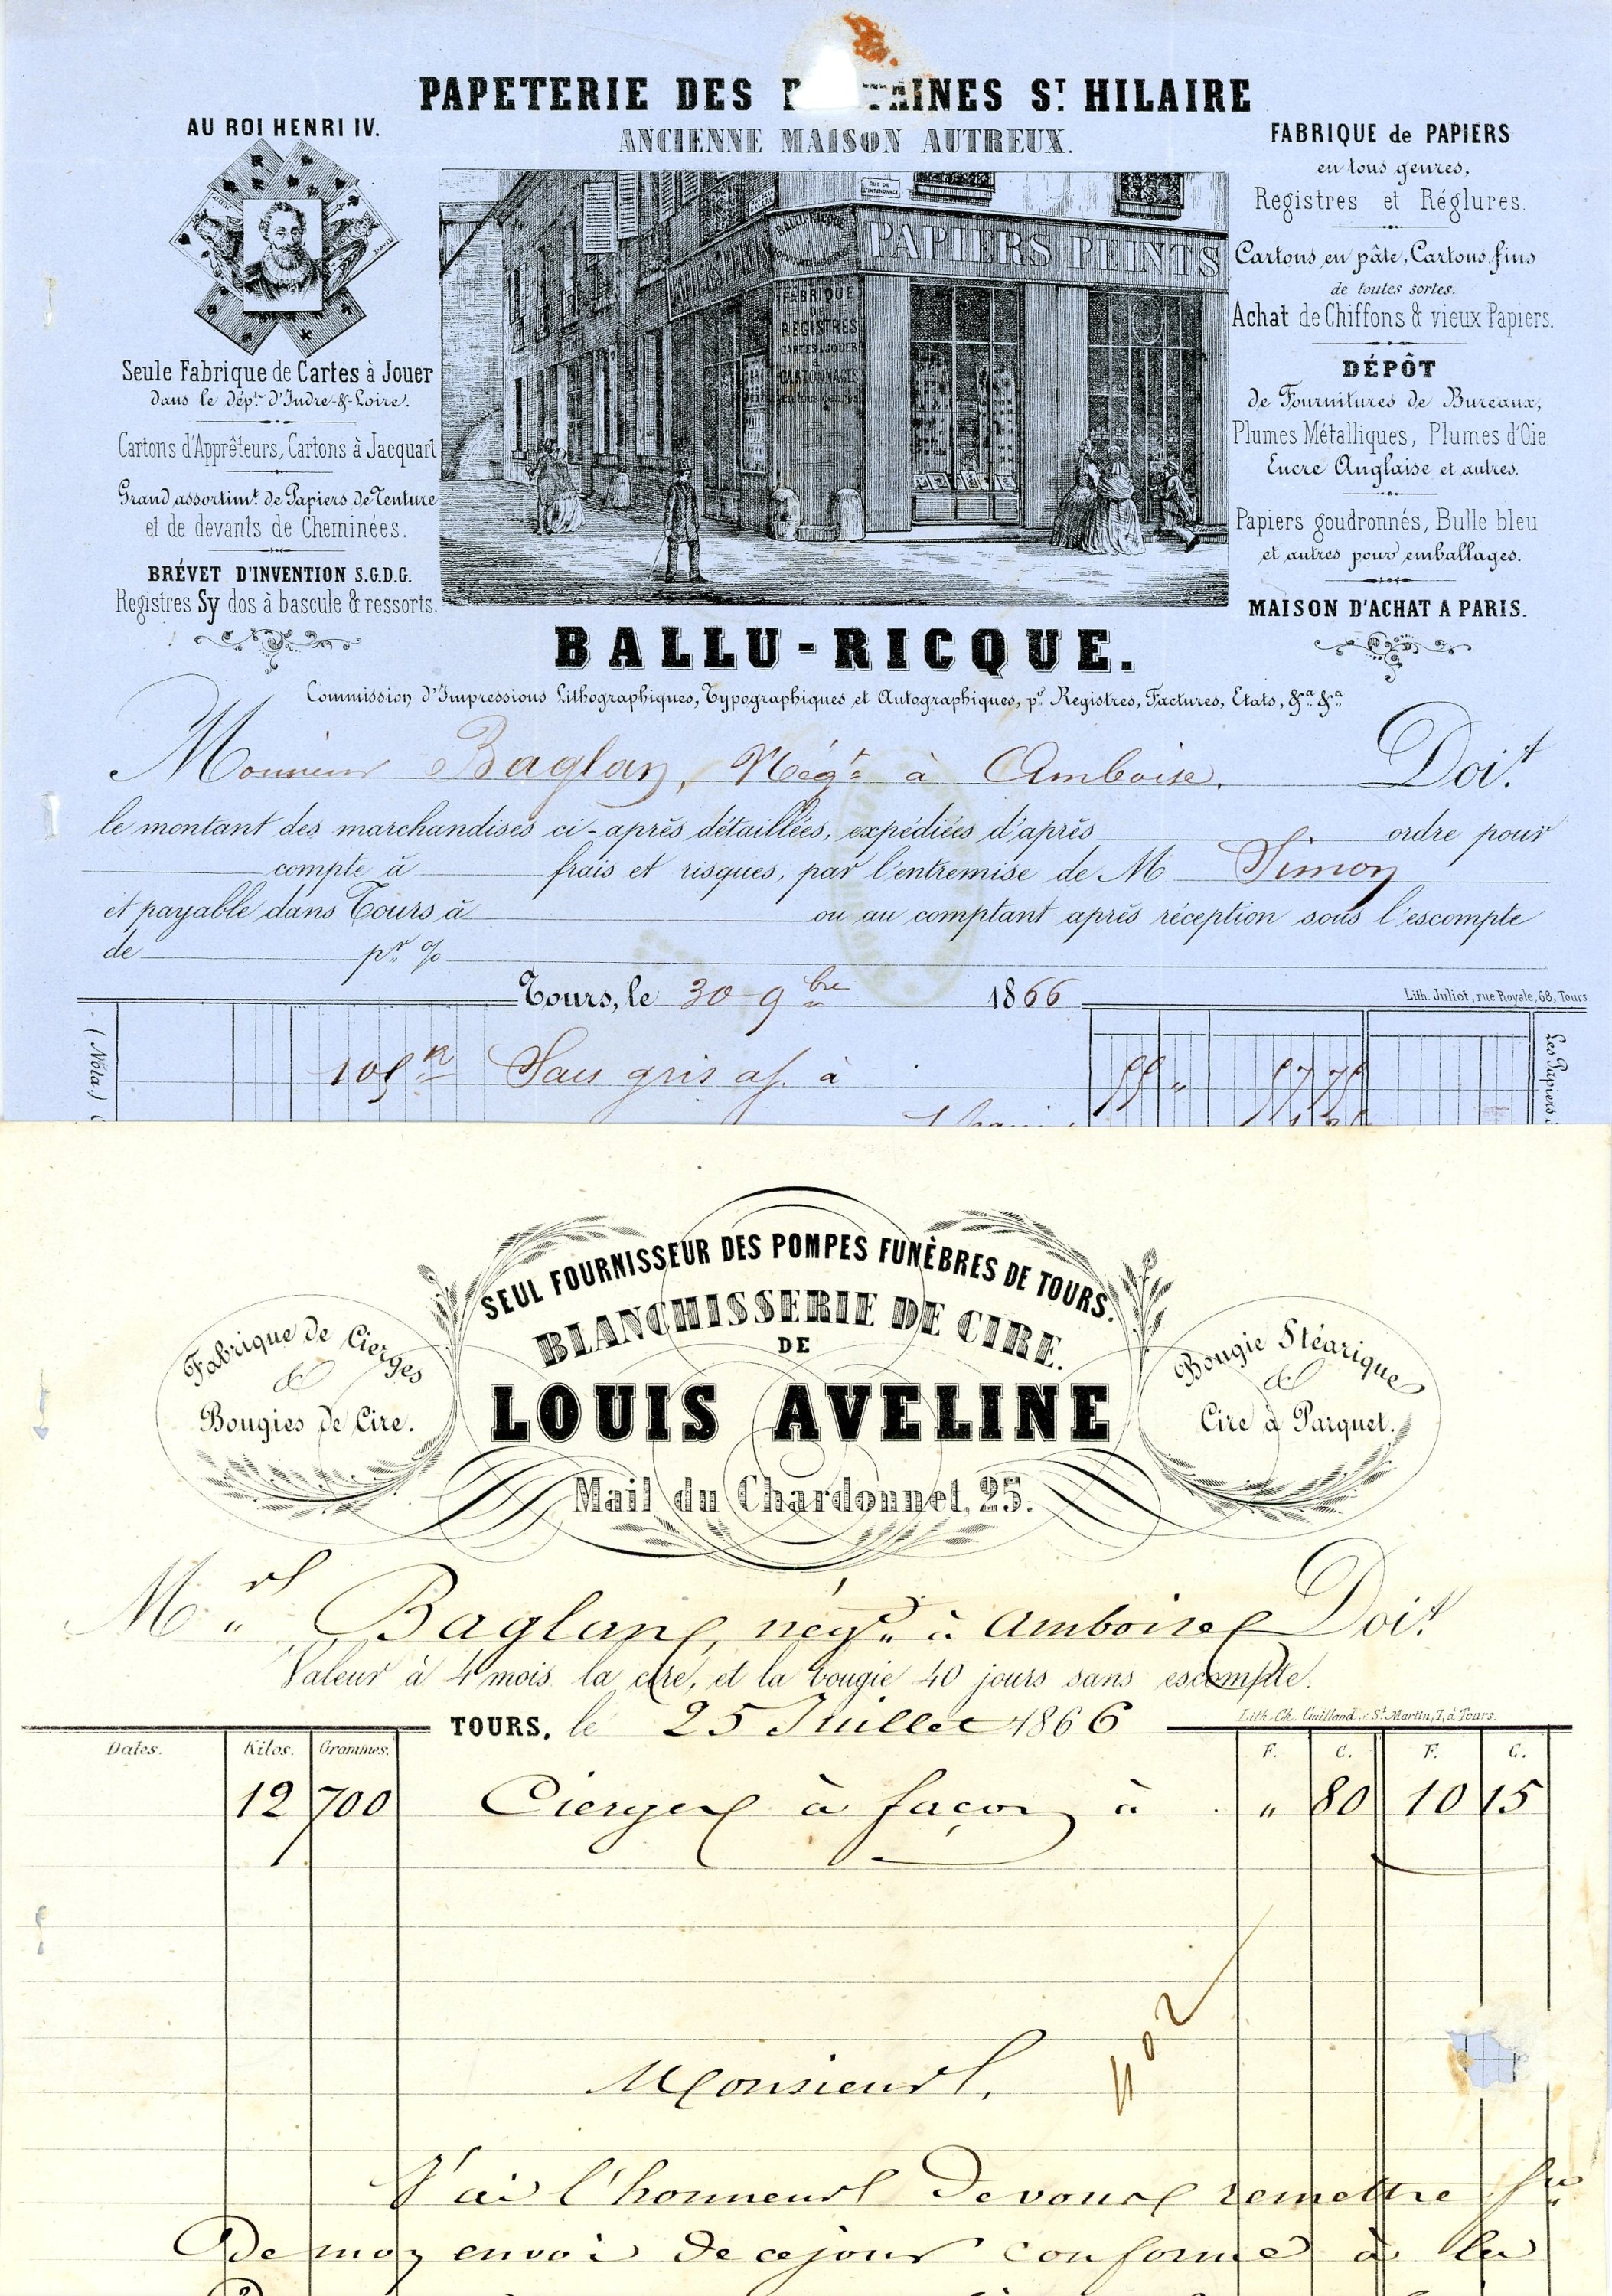 PAPETERIE DES F AINES ST HILAIRE
ANCIENNE MAISON AUTREUX.
AU ROI HENRI IV.
Seule Fabrique de Cartes à Jouer
dans le dépt. d'Indre-&-Loire.
Cartons d'Apprêteurs, Cartons à Jacquart
Grand assortimt. de Papiers de Tenture
et de devants de Cheminées.
BRÉVET D'INVENTION S.G.D.G.
Registres Sy dos à bascule & ressorts.
RUE DE L'INTENDANCE
BALLU-RICQUE
PAPIERS PEINTS
PAPIERS PEINTS
FABRIQUE
DE
REGISTRES
CARTES A JOUER
&
CARTONNAGES
en tous genres
FABRIQUE de PAPIERS
en tous genres,
Registres et Réglures.
Cartons en pâte, Cartons fins
de toutes sortes.
Achat de Chiffons & vieux Papiers.
DÉPÔT
de Fournitures de Bureaux,
Plumes Métalliques, Plumes d'Oie.
Encre Anglaise et autres.
Papiers goudronnés, Bulle bleu
et autres pour emballages.
MAISON D'ACHAT A PARIS.
BALLU-RICQUE.
Commission d'Impressions Lithographiques, Typographiques et Autographiques, pr. Registres, Factures, Etats, &a. &a.
Monsieur Baglan, Négt. à Amboise. Doit
le montant des marchandises ci-après détaillées, expédiées d'après ordre pour
compte à frais et risques, par l'entremise de M Simon
et payable dans Tours à ou au comptant après réception sous l'escompte
de pr. %
Tours, le 30 9bre 1866
Lith. Juliot, rue Royale, 68, Tours
(Nota.)
Les Papiers
Sac gris à
SEUL FOURNISSEUR DES POMPES FUNÈBRES DE TOURS.
BLANCHISSERIE DE CIRE.
DE
LOUIS AVELINE
Mail du Chardonnet, 25.
Fabrique de Cierges
&
Bougies de Cire.
Bougie Stéarique
&
Cire à Parquet.
Mr. Baglan, négt. à Amboise Doit
Valeur à 4 mois la cire, et la bougie 40 jours sans escompte.
TOURS, le 25 Juillet 1866
Lith. Ch. Guilland, r. St. Martin, 7, à Tours.
Dates. Kilos. Grammes. F. C. F. C.
12 700 Cierges à façon à " 80 10 15
Monsieur,
J'ai l'honneur de vous remettre fre
De mon envoi de ce jour conforme à la